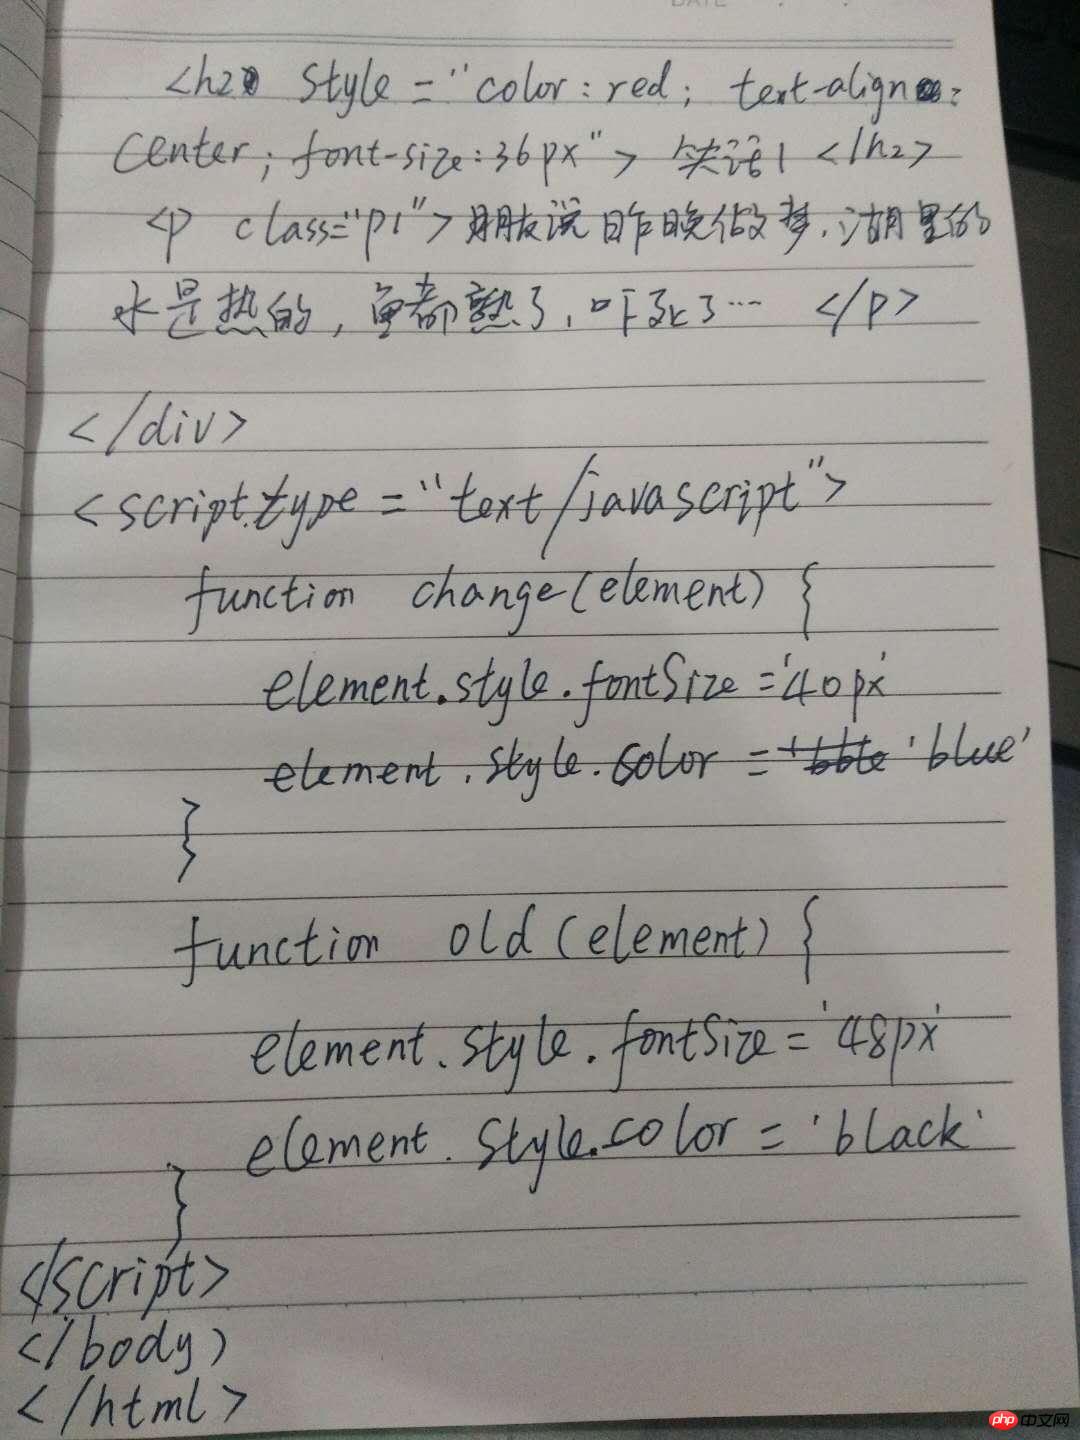 DATE
<h2 style="color:red; text-align:
center; font-size:36px"> 笑话1 </h2>
<p class="p1">朋友说昨晚做梦，湖里的
水是热的，鱼都熟了，吓死了… </p>
</div>
<script type="text/javascript">
function change(element) {
element.style.fontSize='40px'
element.style.color = 'blue'
}
function old(element) {
element.style.fontSize='48px'
element.style.color='black'
}
</script>
</body>
</html>
php 中文网